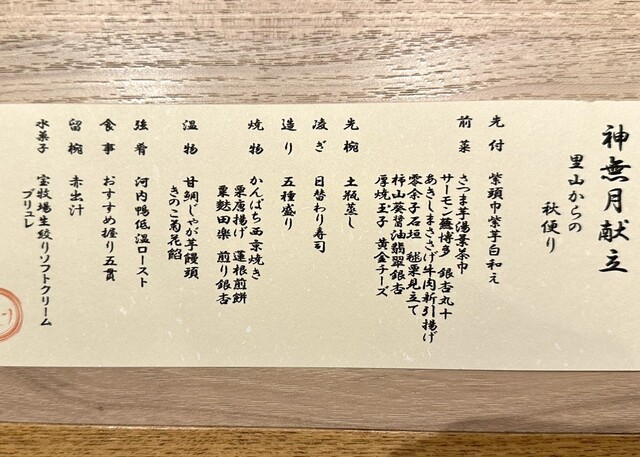 神無月献立
里山からの
秋便り
先付　紫頭巾紫芋白和え
前菜　さつま芋湯葉茶巾
サーモン蕪博多　銀杏丸十
あきしまささげ牛肉新引揚げ
零余子石垣　毬栗見立て
柿山葵醤油翡翠銀杏
厚焼玉子　黄金チーズ
先椀　土瓶蒸し
凌ぎ　日替わり寿司
造り　五種盛り
焼物　かんぱち西京焼き
栗唐揚げ　蓮根煎餅
粟麩田楽　煎り銀杏
温物　甘鯛じゃが芋饅頭
きのこ菊花餡
強肴　河内鴨低温ロースト
食事　おすすめ握り五貫
留椀　赤出汁
水菓子　宝牧場生絞りソフトクリーム
ブリュレ